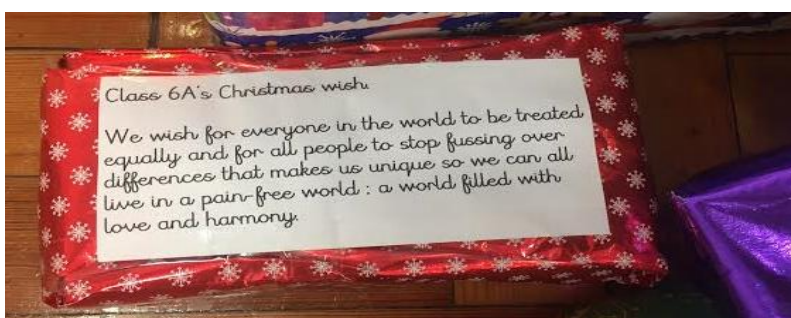 Class 6A's Christmas wish
We wish for everyone in the world to be treated
equally and for all people to stop fussing over
differences that makes us unique so we can all
live in a pain-free world : a world filled with
love and harmony.